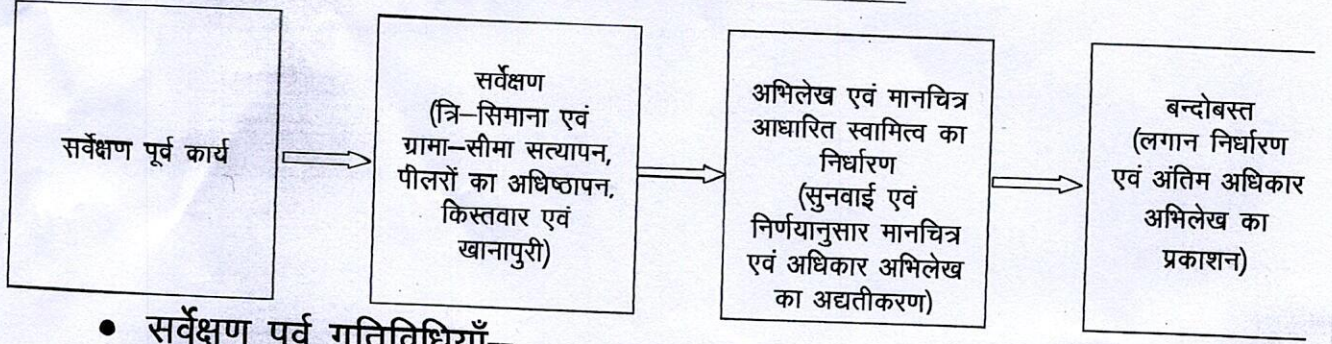 सर्वेक्षण पूर्व कार्य
सर्वेक्षण
(त्रि–सिमाना एवं
ग्रामा–सीमा सत्यापन,
पीलरों का अधिष्ठापन,
किस्तवार एवं
खानापुरी)
अभिलेख एवं मानचित्र
आधारित स्वामित्व का
निर्धारण
(सुनवाई एवं
निर्णयानुसार मानचित्र
एवं अधिकार अभिलेख
का अद्यतीकरण)
बन्दोबस्त
(लगान निर्धारण
एवं अंतिम अधिकार
अभिलेख का
प्रकाशन)
• सर्वेक्षण पूर्व गतिविधियाँ–